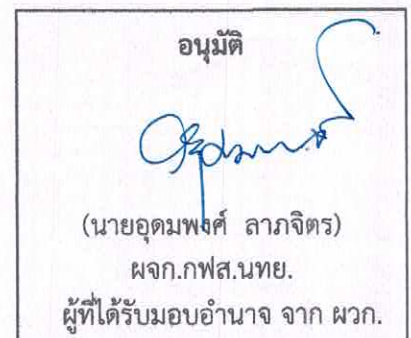 อนุมัติ
(นายอุดมพงศ์ ลาภจิตร)
ผจก.กฟส.นทย.
ผู้ที่ได้รับมอบอำนาจ จาก ผวก.